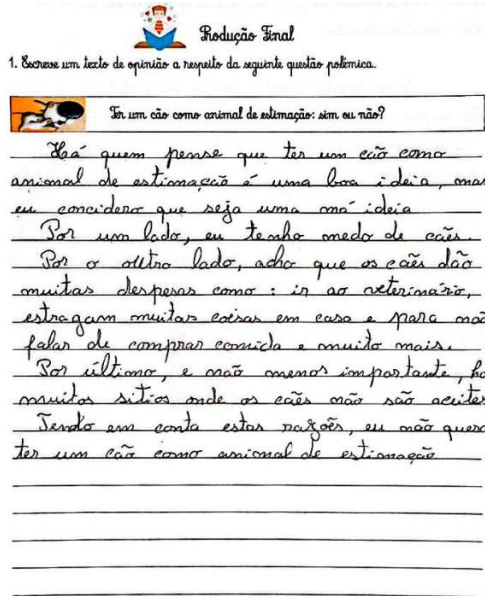 Produção Final
1. Escreve um texto de opinião a respeito da seguinte questão polémica.
Ter um cão como animal de estimação: sim ou não?
Há quem pense que ter um cão como
animal de estimação é uma boa ideia, mas
eu concidero que seja uma má ideia
Por um lado, eu tenho medo de cães.
Por o outro lado, acho que os cães dão
muitas despesas como: ir ao veterinário,
estragam muitas coisas em casa e para não
falar de comprar comida e muito mais.
Por último, e não menos importante, há
muitos sitios onde os cães não são aceites
Tendo em conta estas razoẽs, eu não quero
ter um cão como animal de estimação